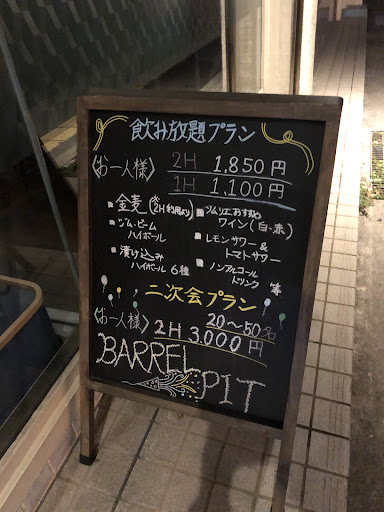 飲み放題プラン
〈お一人様〉 2H 1,850円
1H 1,100円
■ 金麦 (※2H利用より)
■ ジム・ビーム
ハイボール
■ 漬け込み
ハイボール 6種
■ ソムリエおすすめ
ワイン (白・赤)
■ レモンサワー&
トマトサワー
■ ノンアルコール
ドリンク 等
二次会プラン
〈お一人様〉 20〜50名
2H 3,000円
BARREL PIT